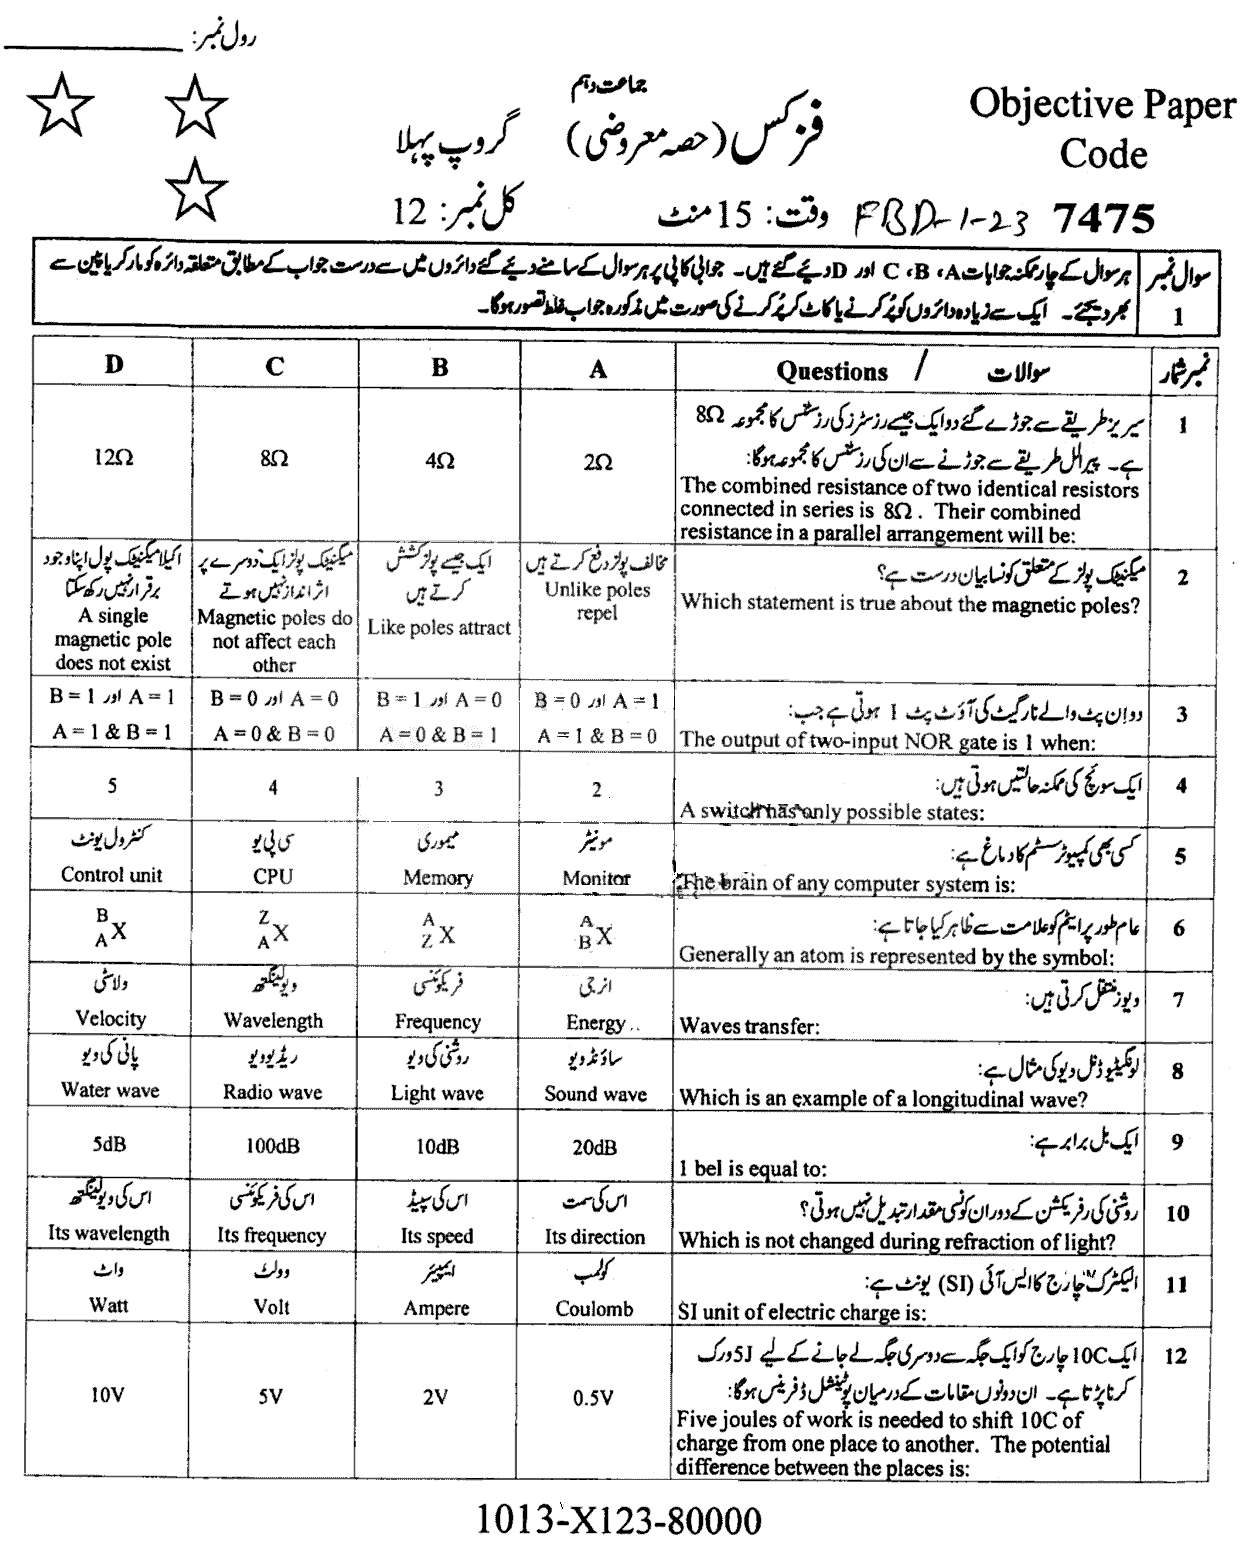 رول نمبر:
جماعت دہم
Objective Paper
Code
فزکس (حصہ معروضی) گروپ پہلا
7475 FBD-1-23 وقت: 15 منٹ کل نمبر: 12
سوال نمبر 1
ہر سوال کے چار ممکنہ جوابات A، B، C اور D دیئے گئے ہیں۔ جوابی کاپی پر ہر سوال کے سامنے دیئے گئے دائروں میں سے درست جواب کے مطابق متعلقہ دائرہ کو مارکر یا پین سے
بھر دیجئے۔ ایک سے زیادہ دائروں کو پُر کرنے یا کاٹ کر پُر کرنے کی صورت میں مذکورہ جواب غلط تصور ہوگا۔
نمبر شمار سوالات / Questions A B C D
1
سیریز طریقے سے جوڑے گئے دو ایک جیسے رزسٹرز کی رزسٹنس کا مجموعہ 8Ω
ہے۔ پیرالل طریقے سے جوڑنے سے ان کی رزسٹنس کا مجموعہ ہوگا:
The combined resistance of two identical resistors
connected in series is 8Ω . Their combined
resistance in a parallel arrangement will be:
2Ω 4Ω 8Ω 12Ω
2
میگنیٹک پولز کے متعلق کونسا بیان درست ہے؟
Which statement is true about the magnetic poles?
مخالف پولز دفع کرتے ہیں
Unlike poles
repel
ایک جیسے پولز کشش
کرتے ہیں
Like poles attract
میگنیٹک پولز ایک دوسرے پر
اثر انداز نہیں ہوتے
Magnetic poles do
not affect each
other
اکیلا میگنیٹک پول اپنا وجود
برقرار نہیں رکھ سکتا
A single
magnetic pole
does not exist
3
دو اِن پٹ والے نار گیٹ کی آؤٹ پٹ 1 ہوتی ہے جب:
The output of two-input NOR gate is 1 when:
A = 1 اور B = 0
A = 1 & B = 0
A = 0 اور B = 1
A = 0 & B = 1
A = 0 اور B = 0
A = 0 & B = 0
A = 1 اور B = 1
A = 1 & B = 1
4
ایک سوئچ کی ممکنہ حالتیں ہوتی ہیں:
A switch has only possible states:
2 3 4 5
5
کسی بھی کمپیوٹر سسٹم کا دماغ ہے:
The brain of any computer system is:
مونیٹر
Monitor
میموری
Memory
سی پی یو
CPU
کنٹرول یونٹ
Control unit
6
عام طور پر ایٹم کو علامت سے ظاہر کیا جاتا ہے:
Generally an atom is represented by the symbol:
A
B X
A
Z X
Z
A X
B
A X
7
ویوز منتقل کرتی ہیں:
Waves transfer:
انرجی
Energy
فریکوئنسی
Frequency
ویولینگتھ
Wavelength
ولاسٹی
Velocity
8
لونگیٹیوڈنل ویو کی مثال ہے:
Which is an example of a longitudinal wave?
ساؤنڈ ویو
Sound wave
روشنی کی ویو
Light wave
ریڈیو ویو
Radio wave
پانی کی ویو
Water wave
9
ایک بل برابر ہے:
1 bel is equal to:
20dB 10dB 100dB 5dB
10
روشنی کی رفریکشن کے دوران کونسی مقدار تبدیل نہیں ہوتی؟
Which is not changed during refraction of light?
اس کی سمت
Its direction
اس کی سپیڈ
Its speed
اس کی فریکوئنسی
Its frequency
اس کی ویولینگتھ
Its wavelength
11
الیکٹرک چارج کا ایس آئی (SI) یونٹ ہے:
SI unit of electric charge is:
کولمب
Coulomb
ایمپیئر
Ampere
وولٹ
Volt
واٹ
Watt
12
ایک 10C چارج کو ایک جگہ سے دوسری جگہ لے جانے کے لیے 5J ورک
کرنا پڑتا ہے۔ ان دونوں مقامات کے درمیان پوٹینشل ڈفرینس ہوگا:
Five joules of work is needed to shift 10C of
charge from one place to another. The potential
difference between the places is:
0.5V 2V 5V 10V
1013-X123-80000